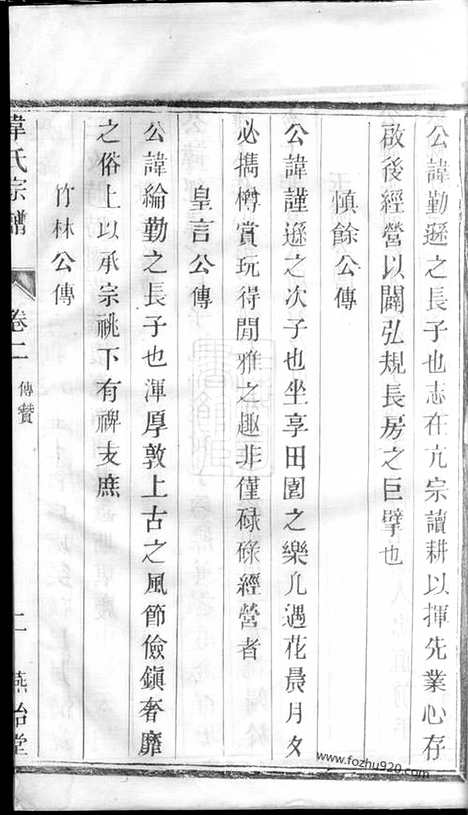 公諱勤遜之長子也志在亢宗讀耕以揮先業心存
啟後經營以闢弘規長房之巨擘也
慎餘公傳
公諱謹遜之次子也坐享田園之樂凢遇花晨月夕
必擕樽賞玩得閒雅之趣非僅碌碌經營者
皇言公傳
公諱綸勤之長子也渾厚敦上古之風節儉鎮奢靡
之俗上以承宗祧下有裨支庶
竹林公傳
韋氏宗譜 卷二 傳贊 二 燕治堂
www.fozhu920.com